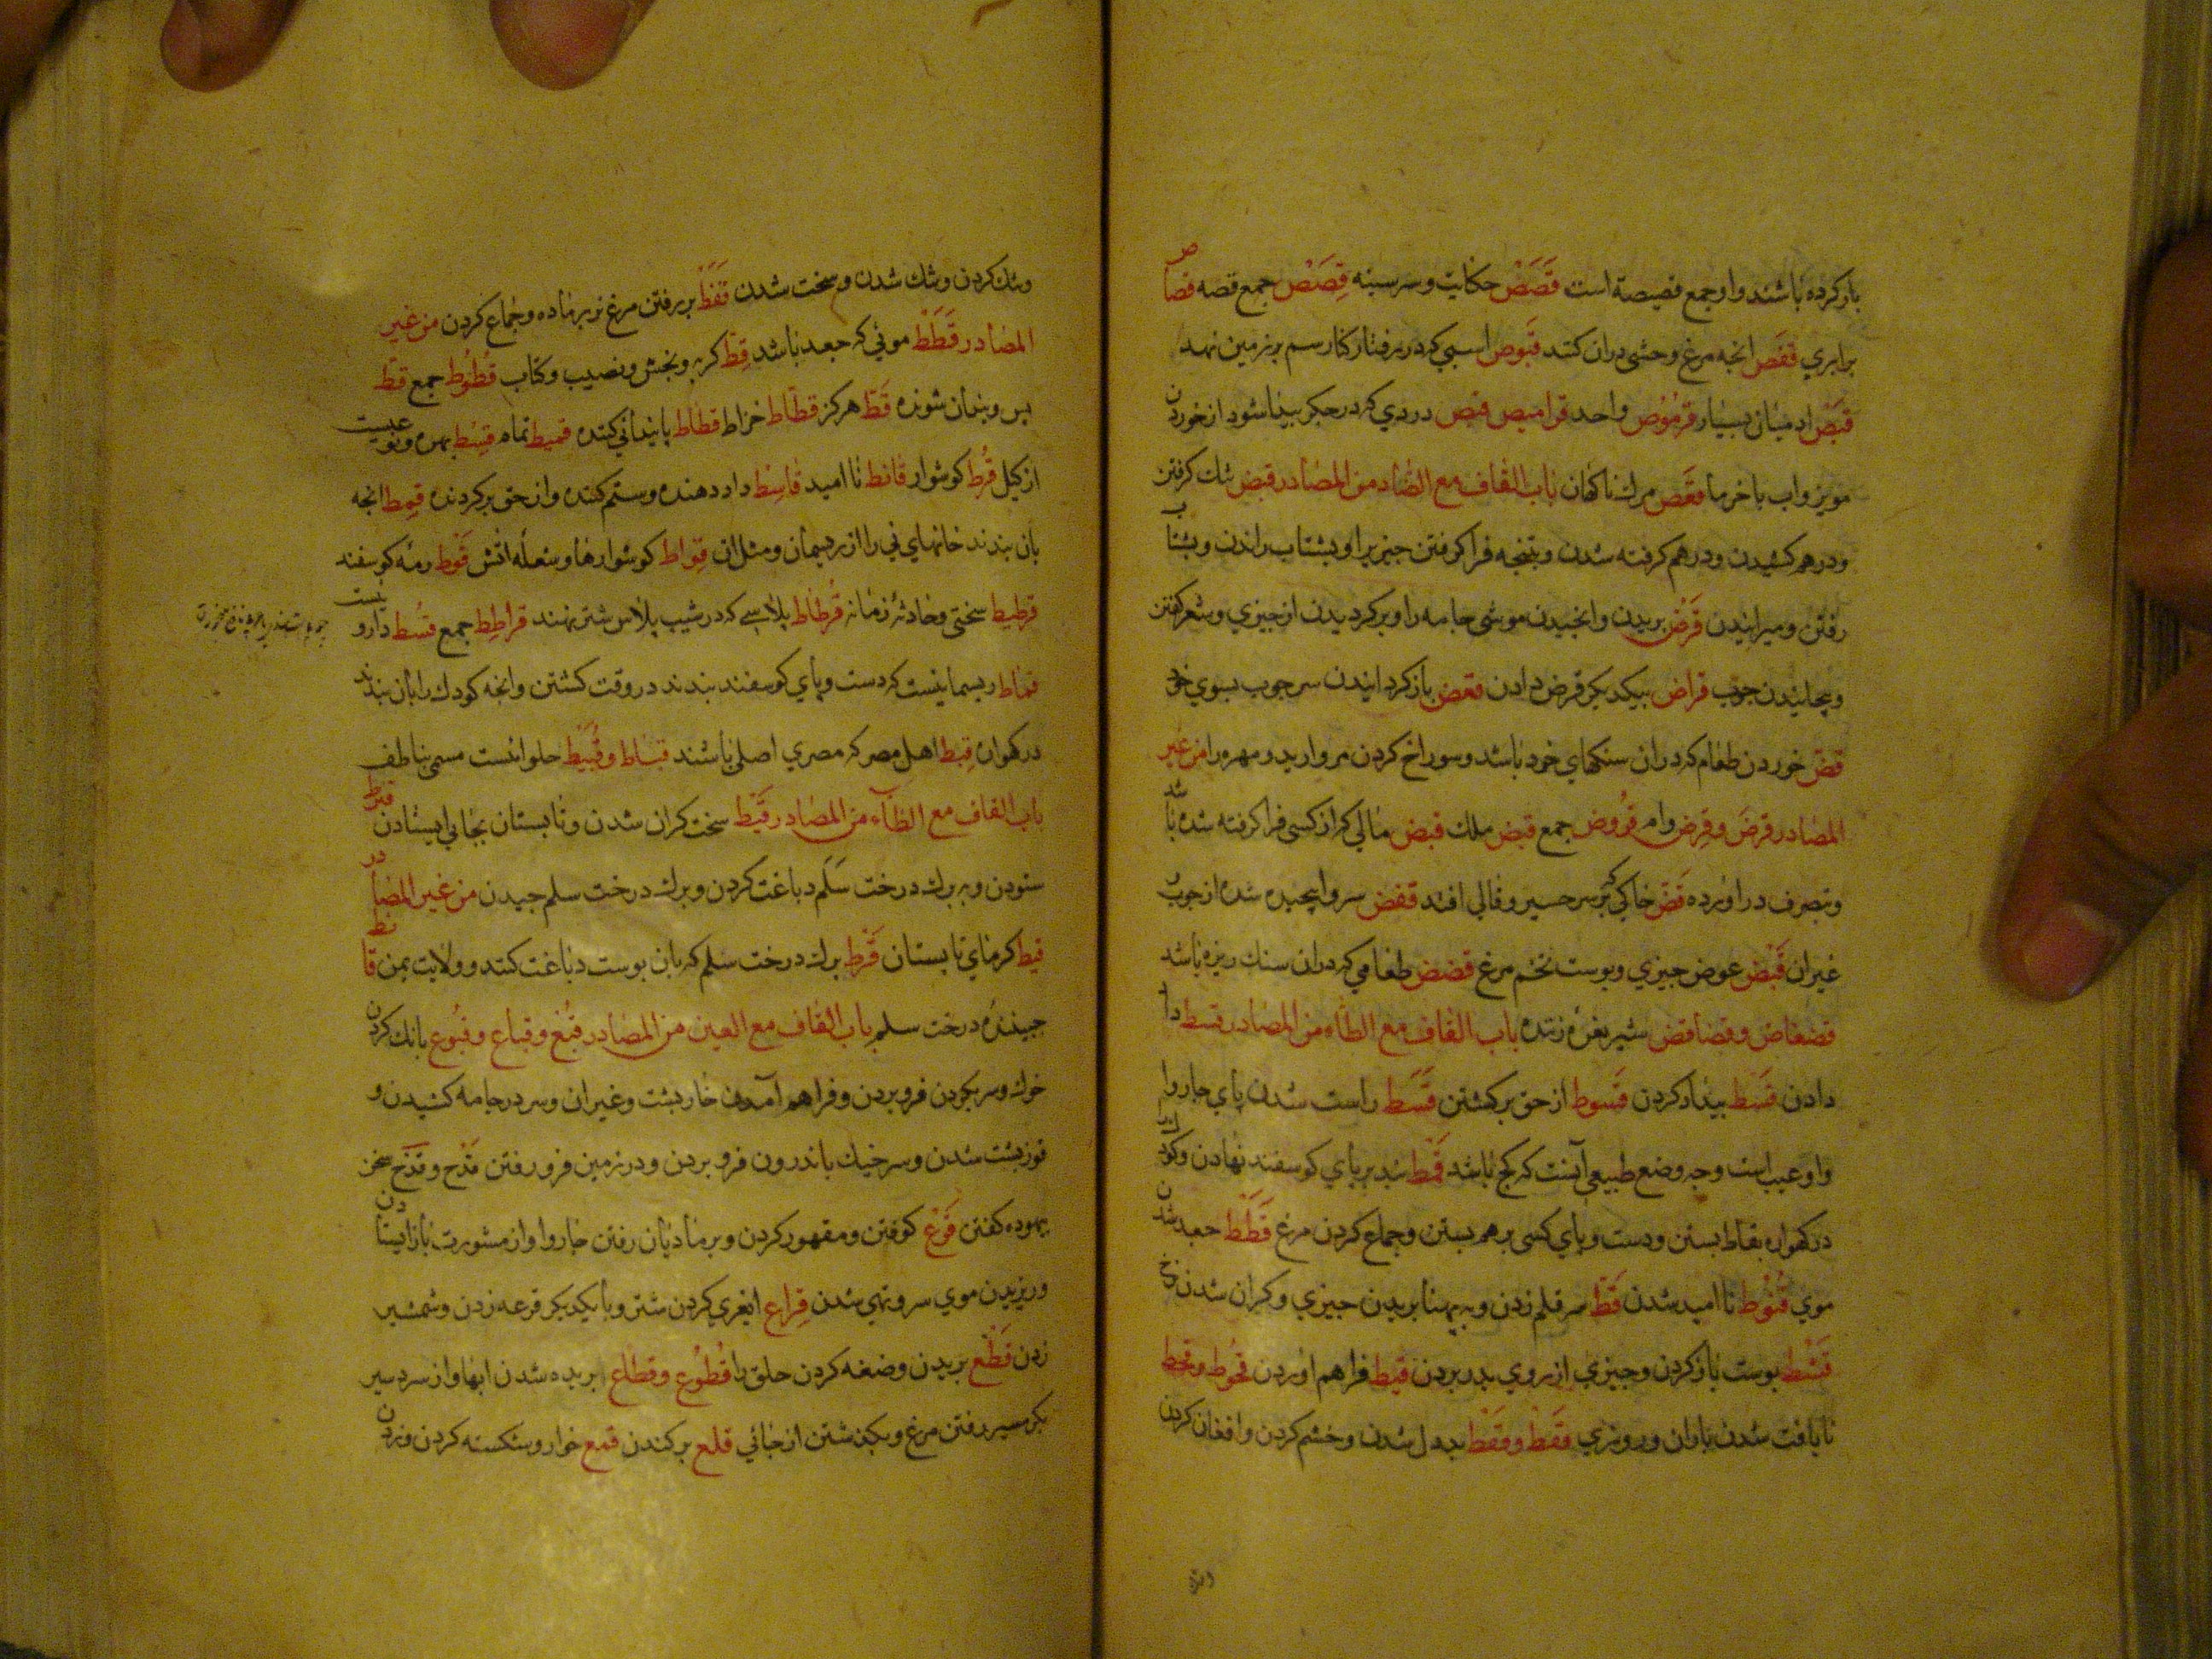 باز کرده باشند و او جمع قصیصة است قَصَصْ حکایت و سر سینه قِصَصْ جمع قصه قصاص
برابری قفَص انجه مرغ وحشی دران کنند قَبوص اسبی که در رفتار کنار سم بر زمین نهد
قبْصْ ادمیان بسیار قرمُوْص واحد قرامیص قبص دردی که در جکر بیدا شود از خوردن
مویز و اب با خرما قعْص مرك ناکهان باب القاف مع الضاد من المصادر قبض تنك کرفتن
و درهم کشیدن و درهم کرفته شدن و بتنجه فرا کرفتن جیزیرا و بشتاب راندن و بشتاب
رفتن و میرانیدن قَرْض بریدن و انجیدن موشی جامه را و بر کردیدن از جیزی و شعر کفتن
و بجانیدن جوب قراض بیکدیکر قرض دادن قعض باز کردانیدن سر جوب بسوی خود
قض خوردن طعام که دران سنکهای خود باشد و سوراخ کردن مروارید و مهره را من غیر
المصادر قرض و قِرض وام قُروض جمع قبض ملك قبض مالی که از کسی فرا کرفته شده باشد
و بتصرف در اورده قَضّ خاکی که بر سر حسیر و قالی افتد قفض سر وا بیجیده شده از جوب
غیر ان قَیْض عوض جیزی و بوست تخم مرغ قضض طعامی که دران سنك ریزه باشد
قضقاض و قضاقض شیر بغره زننده باب القاف مع الطاء من المصادر قسط داد
دادن قَسْط بیداد کردن قُسوط از حق بر کشتن قَسَط راست شدن بای جاروا
و او عیب است و جه وضع طبیعی آنست که کج باشد قَمْط بند بر بای کوسفند نهادن و کودك
در کهواره بقماط بستن و دست و بای کسی برهم بستن و جماع کردن مرغ قَطَط جعد شدن
موی قُنُوْط نا امید شدن قَطّ سر قلم زدن و به بهنا بریدن جیزی و کران شدن نرخ
قَشْط بوست باز کردن و جیزی از روی بدر بردن قبط فراهم اوردن قحُوط و قحط
نا یافت شدن باران و روزی قَنَط و قَنْط بددل شدن و خشم کردن و افغان کردن
و تنك کردن و تنك شدن و سخت شدن قَفْط بر رفتن مرغ نر بر ماده و جماع کردن من غیر
المصادر قَطَطْ موئی که جعد باشد قِطّ کربه و بخش و نصیب و کتاب قُطُوْط جمع قط
بس و بنهان شونده قَطّ هرکز قطّاط خراط قطاط بایندانی کننده قمیط تمام قِسْط بهره و نوبت
از کیل قُرط کوشوار قانط نا امید قاسِط داد دهنده و ستم کننده و از حق بر کردنده قِمط انجه
بان بندند خانهای نی را از ریسمان و مثل ان قِراط کوشوارها و شعله اتش قَوْط رمه کوسفند
قرطیط سختی و حادثهٔ زمانه قُرطاط بلاسی که در شیب بلاس شتر نهند قراطِط جمع قسُط داروئیست
قماط ریسمانیست که دست و بای کوسفند بندند در وقت کشتن و انجه کودك را بان بندند
در کهواره قِبط اهل مصر که مصری اصلی باشند قبّاط و قُبّیط حلوائست مسمی بناطف
باب القاف مع الظآء من المصادر قَیْظ سخت کران شدن و تابستان بجائی ایستادن قرظ
ستودن و به برك درخت سَلَم دباغت کردن و برك درخت سلم جیدن من غیر المصادر
قیظ کرمای تابستان قَرَظ برك درخت سلم که بان بوست دباغت کنند و ولایت یمن قارظ
جینندهٔ درخت سلم باب القاف مع العین من المصادر قَبْع و قباع و قبُوع بانك کردن
خوك و سر بخودن فرو بردن و فراهم آمدن خاربشت و غیر ان و سر در جامه کشیدن و
قوزبشت شدن و سر خیك باندرون فرو بردن و در زمین فرو رفتن قَدْح و قَدَح سخن
بیهوده کفتن قَرْع کوفتن و مقهور کردن و بر مادیان رفتن جاروا و از مشورت باز ایستادن
و ریزیدن موی سر و تهی شدن قِراع ایغری کردن شتر و با یکدیکر قرعه زدن و شمشیر
زدن قَطْع بریدن و ضعه کردن حلق را قُطُوْع و قطاع بریده شدن ابها و از سردسیر
بکرمسیر رفتن مرغ و بکذشتن از جائی قلع بر کندن قمع خوار و شکسته کردن و زدن